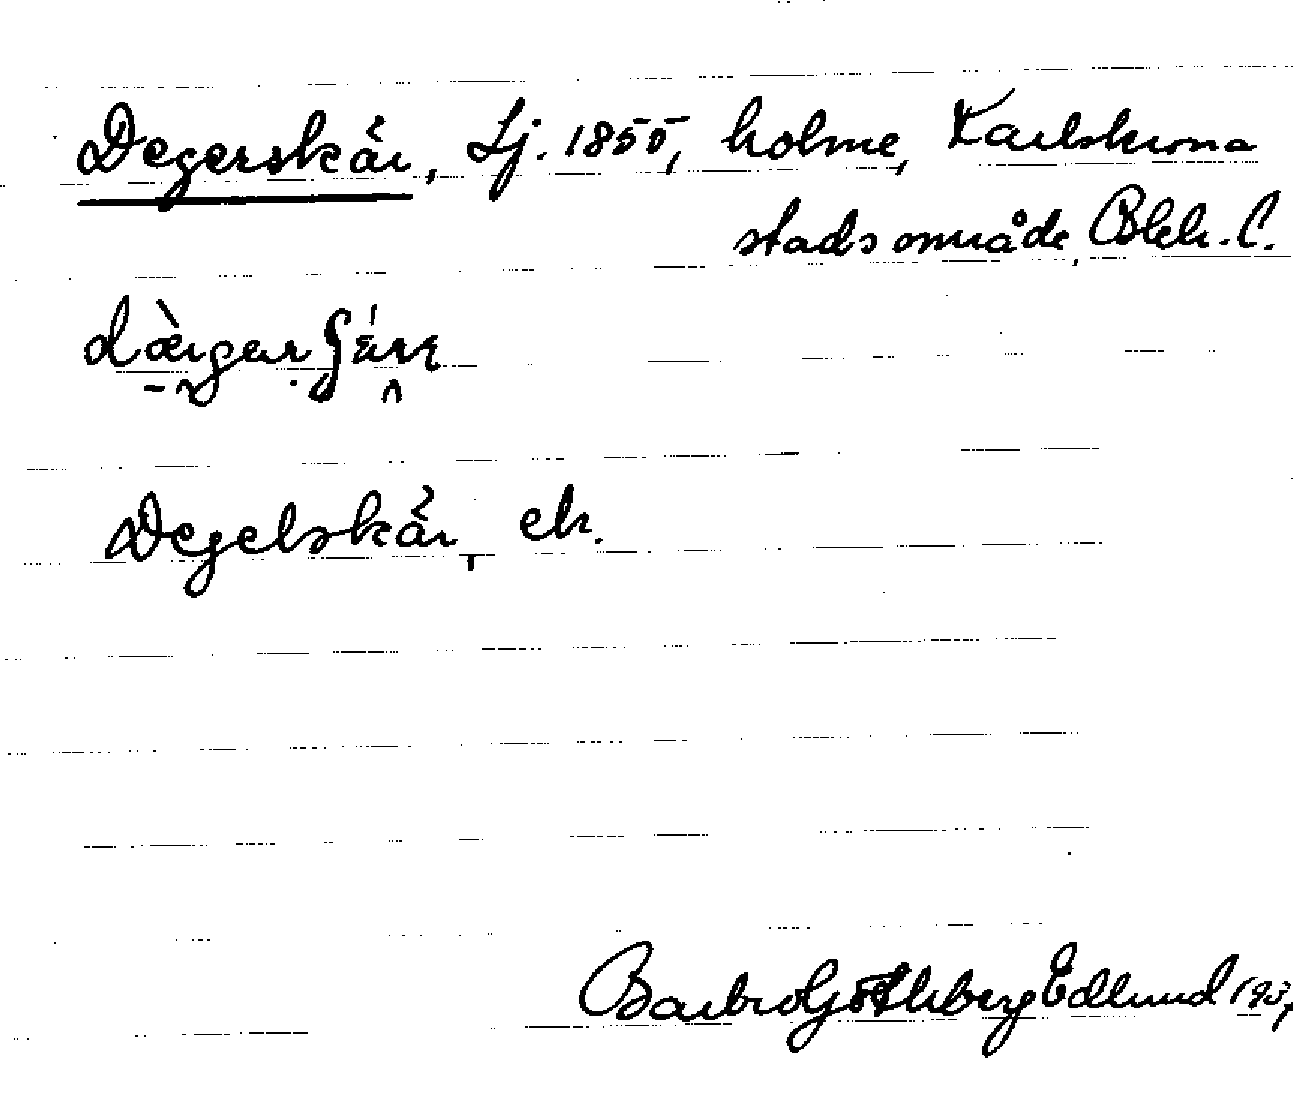 Degerskär, Lj. 1855, holme, Karlskrona
stadsområde, Blek. l.
Degelskär, ek.
Barbro Göthberg Edlund